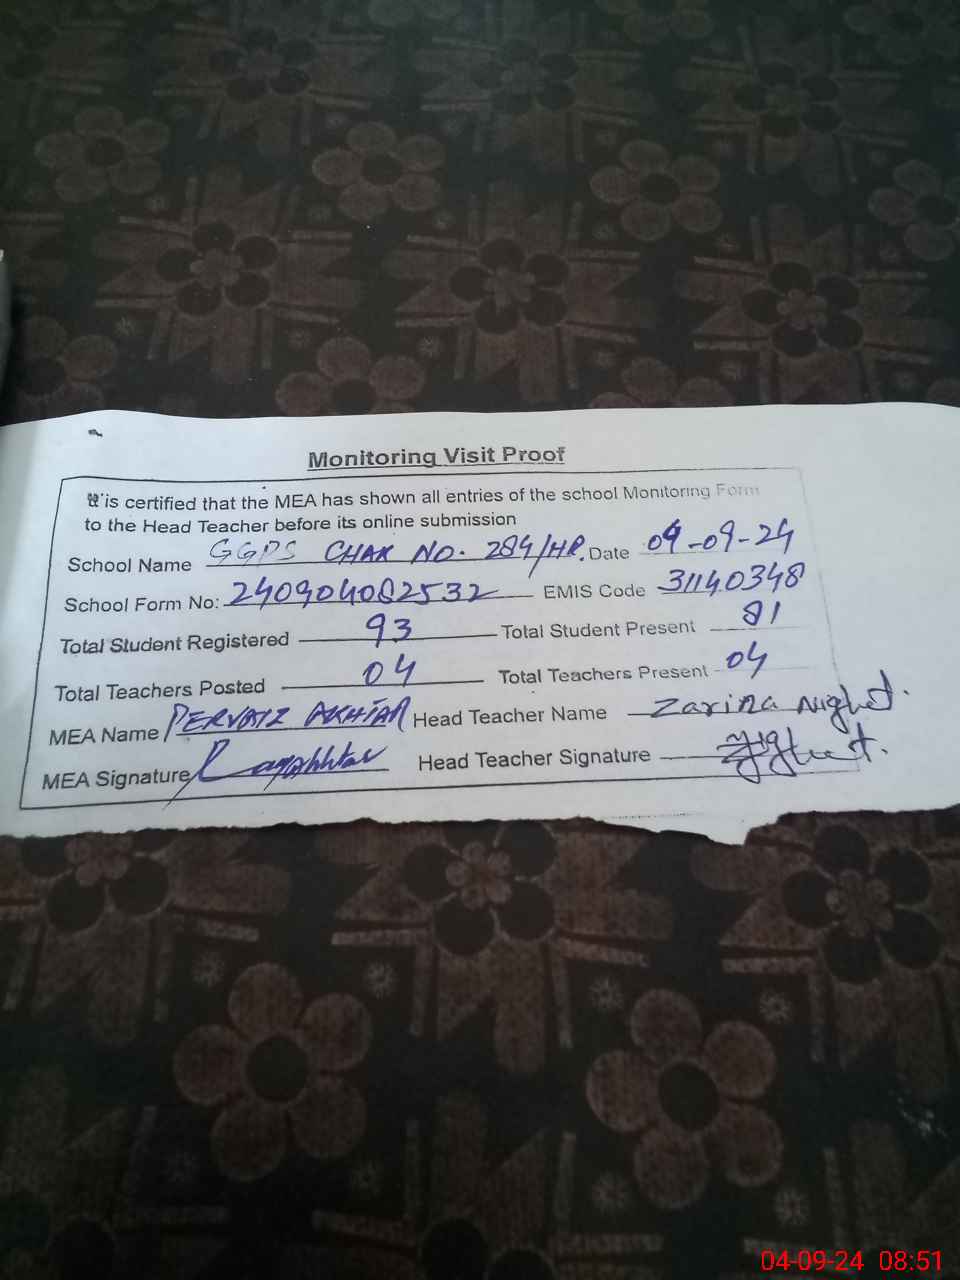 Monitoring Visit Proof
It is certified that the MEA has shown all entries of the school Monitoring Form
to the Head Teacher before its online submission
School Name GGPS CHAK NO. 284/HR. Date 04-09-24
School Form No: 240904082532 EMIS Code 31140348
Total Student Registered 93 Total Student Present 81
Total Teachers Posted 04 Total Teachers Present 04
MEA Name PERVAIZ AKHTAR Head Teacher Name Zarina Nighat.
MEA Signature Head Teacher Signature
04-09-24 08:51